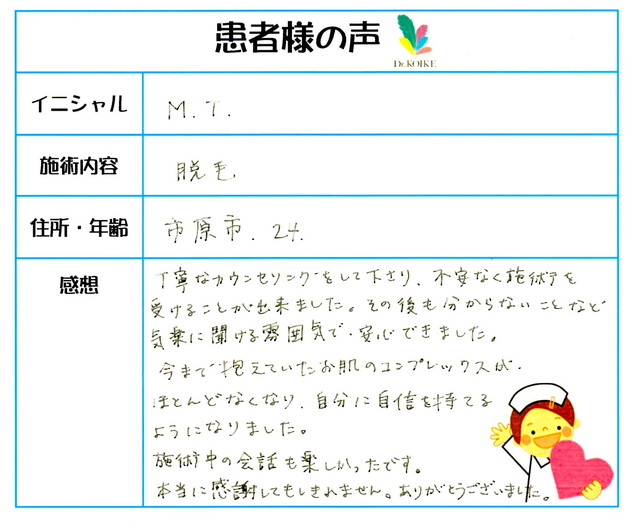 患者様の声
Dr.KOIKE
イニシャル M.T.
施術内容 脱毛.
住所・年齢 市原市. 24.
感想
丁寧なカウンセリングをして下さり、不安なく施術を
受けることが出来ました。その後も分からないことなど
気楽に聞ける雰囲気で、安心できました。
今まで抱えていたお肌のコンプレックスが、
ほとんどなくなり、自分に自信を持てる
ようになりました。
施術中の会話も楽しかったです。
本当に感謝してもしきれません。ありがとうございました。